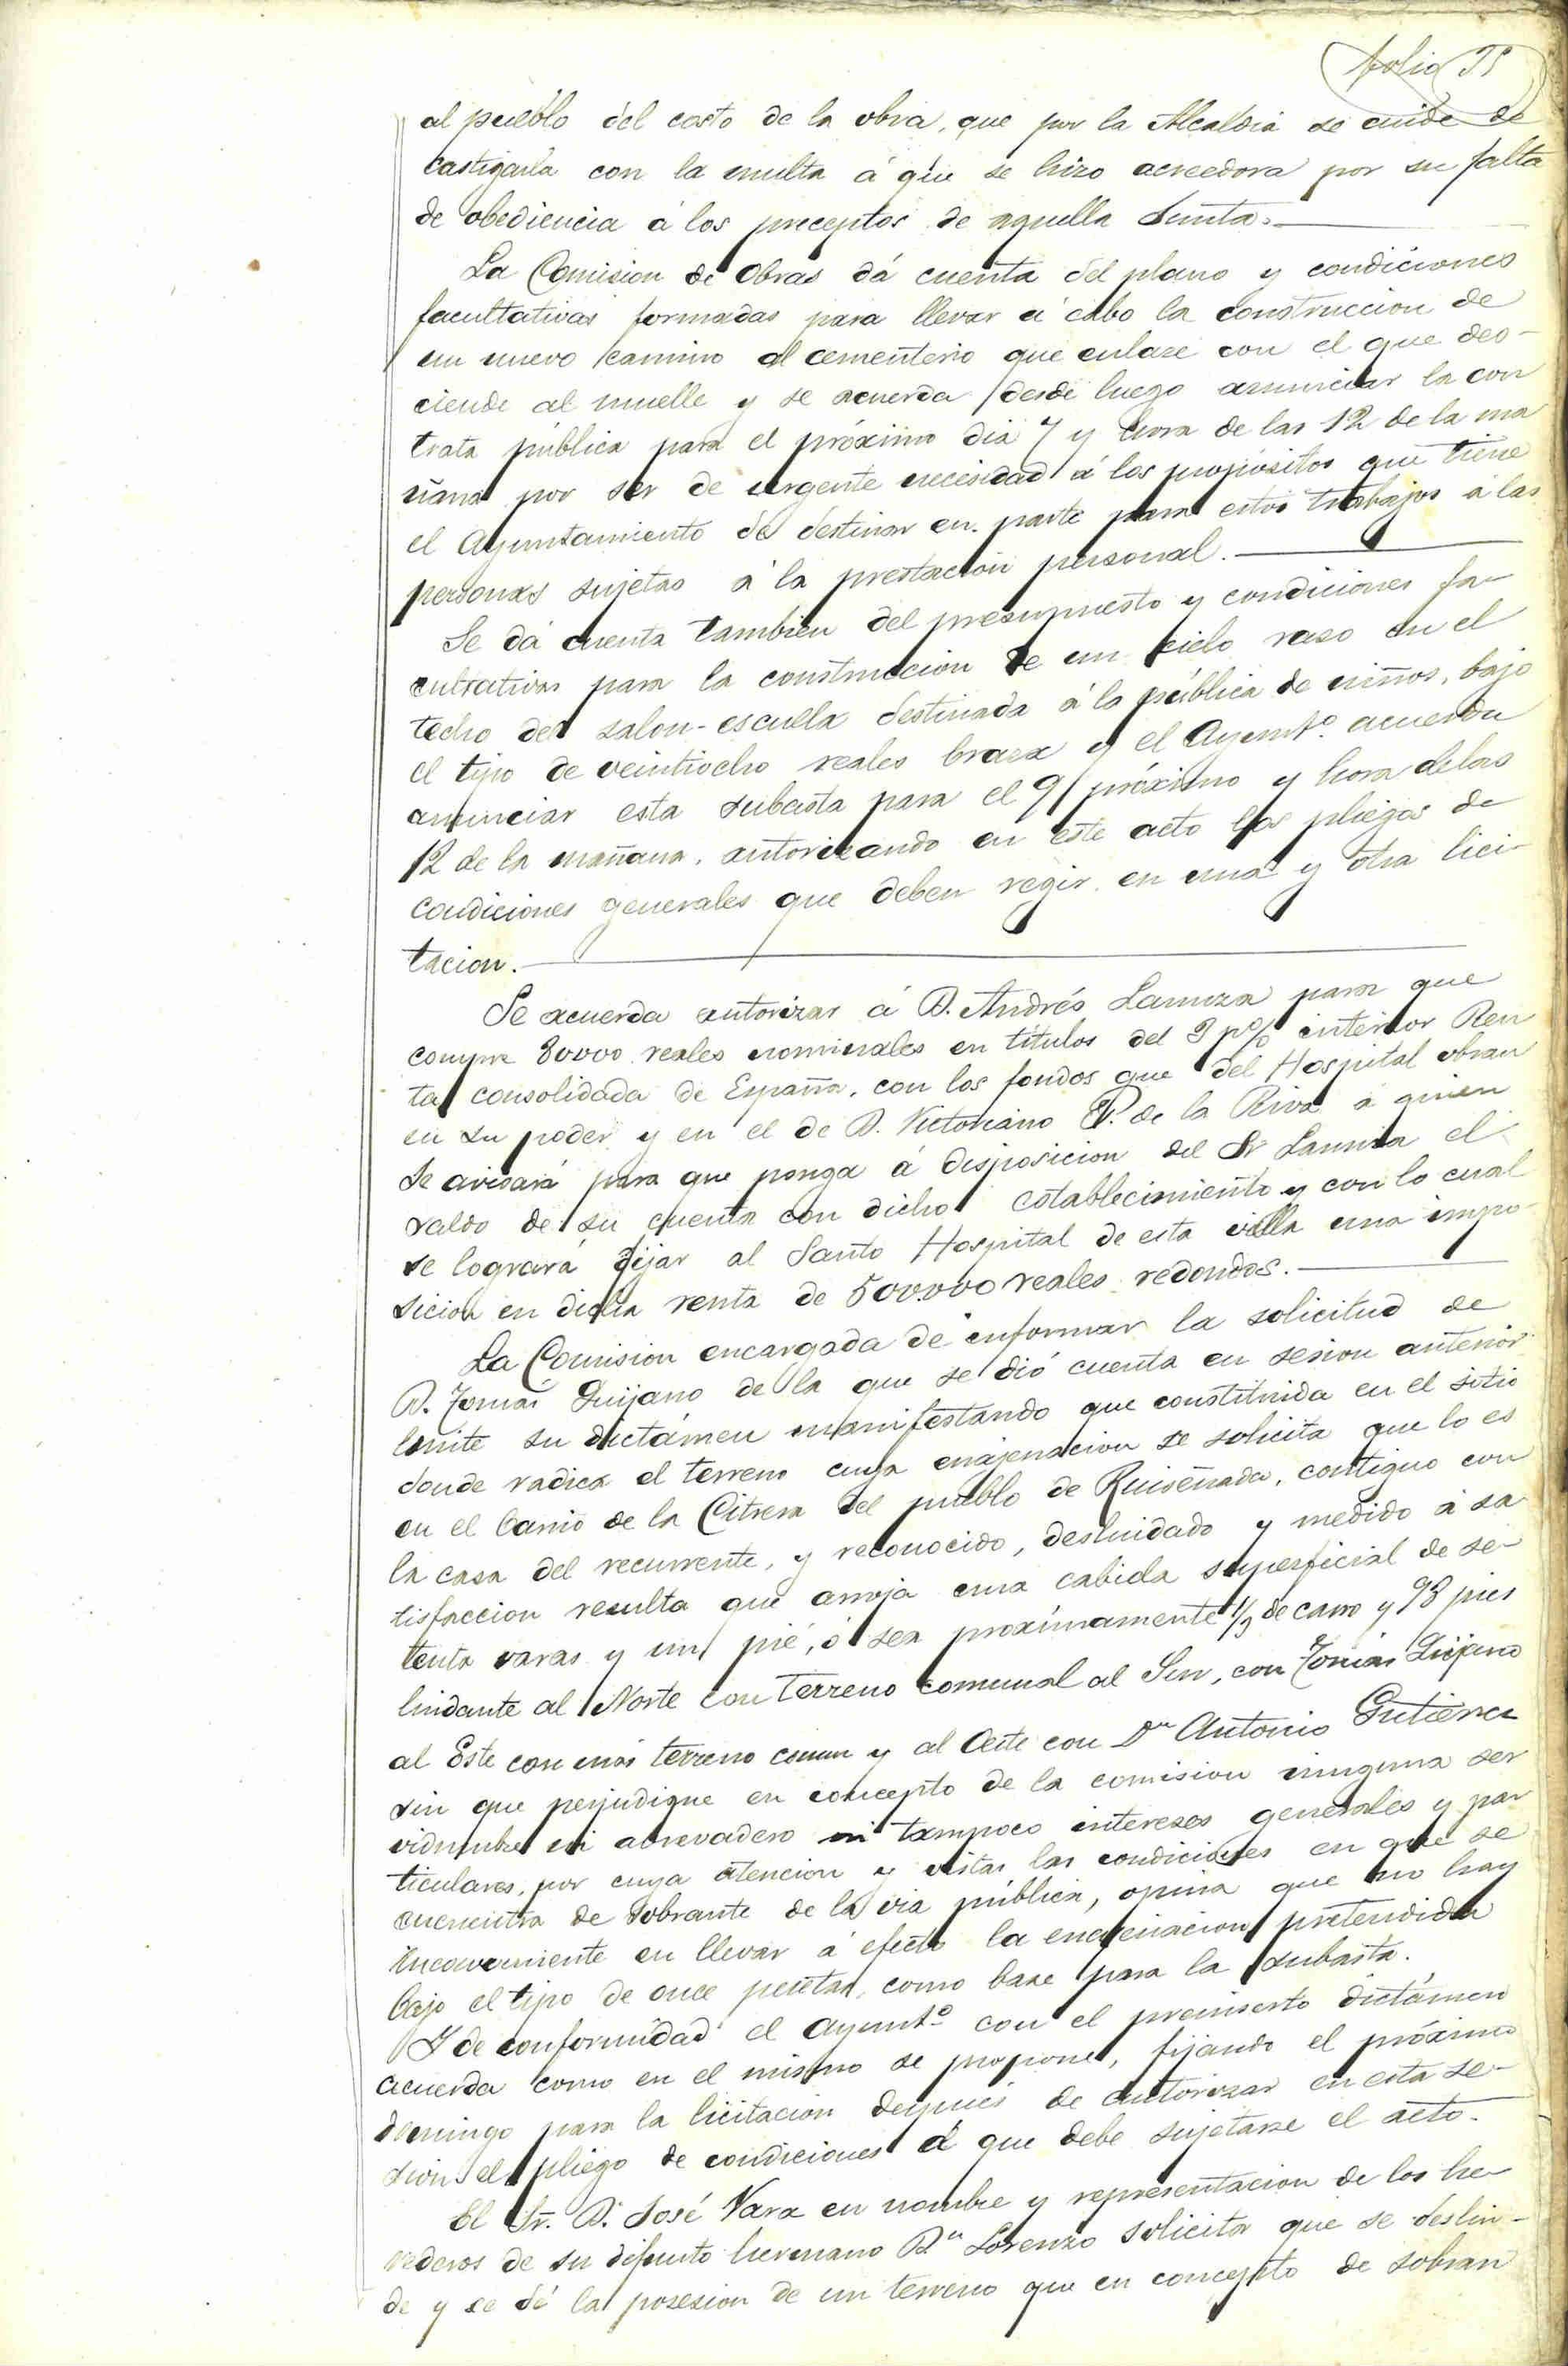 folio
al pueblo del costo de la obra, que por la Alcaldia se cuide de
castigarla con la multa á que se hizo acreedora por su falta
de obediencia á los preceptos de aquella Junta.
La Comision de Obras dá cuenta del plano y condiciones
facultativas formadas para llevar á cabo la construccion de
un nuevo camino al cementerio que enlace con el que des-
ciende al muelle y se acuerda desde luego anunciar la con
trata pública para el próximo dia 7 y hora de las 12 de la ma
ñana por ser de urgente necesidad á los propósitos que tiene
el Ayuntamiento de destinar en parte para estos trabajos á las
personas sujetas á la prestacion personal.
Se dá cuenta tambien del presupuesto y condiciones fa-
cultativas para la construccion de un cielo raso en el
techo del salon-escuela destinada á la pública de niños, bajo
el tipo de veintiocho reales braza y el Ayuntº. acuerda
anunciar esta subasta para el 9 próximo y hora de las
12 de la mañana, autorizando en este acto los pliegos de
condiciones generales que deben regir en una y otra lici-
tacion.
Se acuerda autorizar á D. Andrés Lamuza para que
compre 80000 reales nominales en títulos del 3 p% interior Ren
ta consolidada de España, con los fondos que del Hospital obran
en su poder y en el de D. Victoriano P. de la Riva á quien
se avisará para que ponga á disposicion del Sr Lamuza el
saldo de su cuenta con dicho establecimiento y con lo cual
se logrará fijar al Santo Hospital de esta villa una impo-
sicion en dicha renta de 500.000 reales redondos.
La Comision encargada de informar la solicitud de
D. Tomas Quijano de la que se dió cuenta en sesion anterior
emite su dictámen manifestando que constituida en el sitio
donde radica el terreno cuya enajenacion se solicita que lo es
en el barrio de la Citrera del pueblo de Ruiseñada, contiguo con
la casa del recurrente, y reconocido, deslindado y medido á sa
tisfaccion resulta que arroja una cabida superficial de se-
tenta varas y un pié, ó sea proximamente 1/3 de carro y 98 pies
lindante al Norte con terreno comunal al Sur, con Tomás Quijano
al Este con más terreno comun y al Oeste con Dn Antonio Gutierrez
sin que perjudique en concepto de la comision ninguna ser
vidumbre ni abrevadero ni tampoco intereses generales y par
ticulares, por cuya atencion y vistas las condiciones en que se
encuentra de sobrante de la via pública, opina que no hay
inconveniente en llevar á efecto la enagenacion pretendida
bajo el tipo de once pesetas, como base para la subasta.
Y de conformidad el Ayuntº con el preinserto dictámen
acuerda como en el mismo se propone, fijando el próximo
domingo para la licitacion despues de autorizar en esta se-
sion el pliego de condiciones á que debe sujetarse el acto.
El Sr. D. José Vara en nombre y representacion de los he-
rederos de su difunto hermano Dn Lorenzo solicita que se deslin-
de y se dé la posesion de un terreno que en concepto de sobran